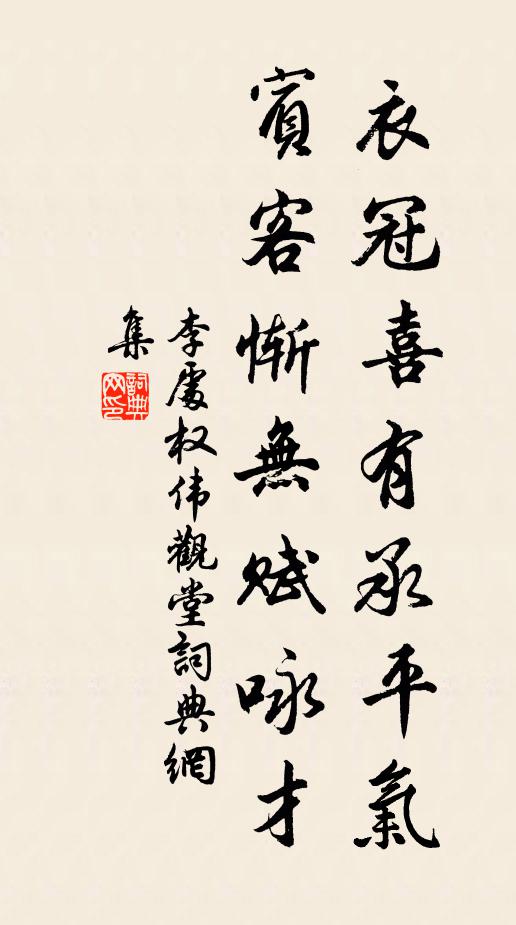 衣冠喜有承平氣
賓客慚無賦咏才
李處权伟觀堂詞典網
集
詞典
网印